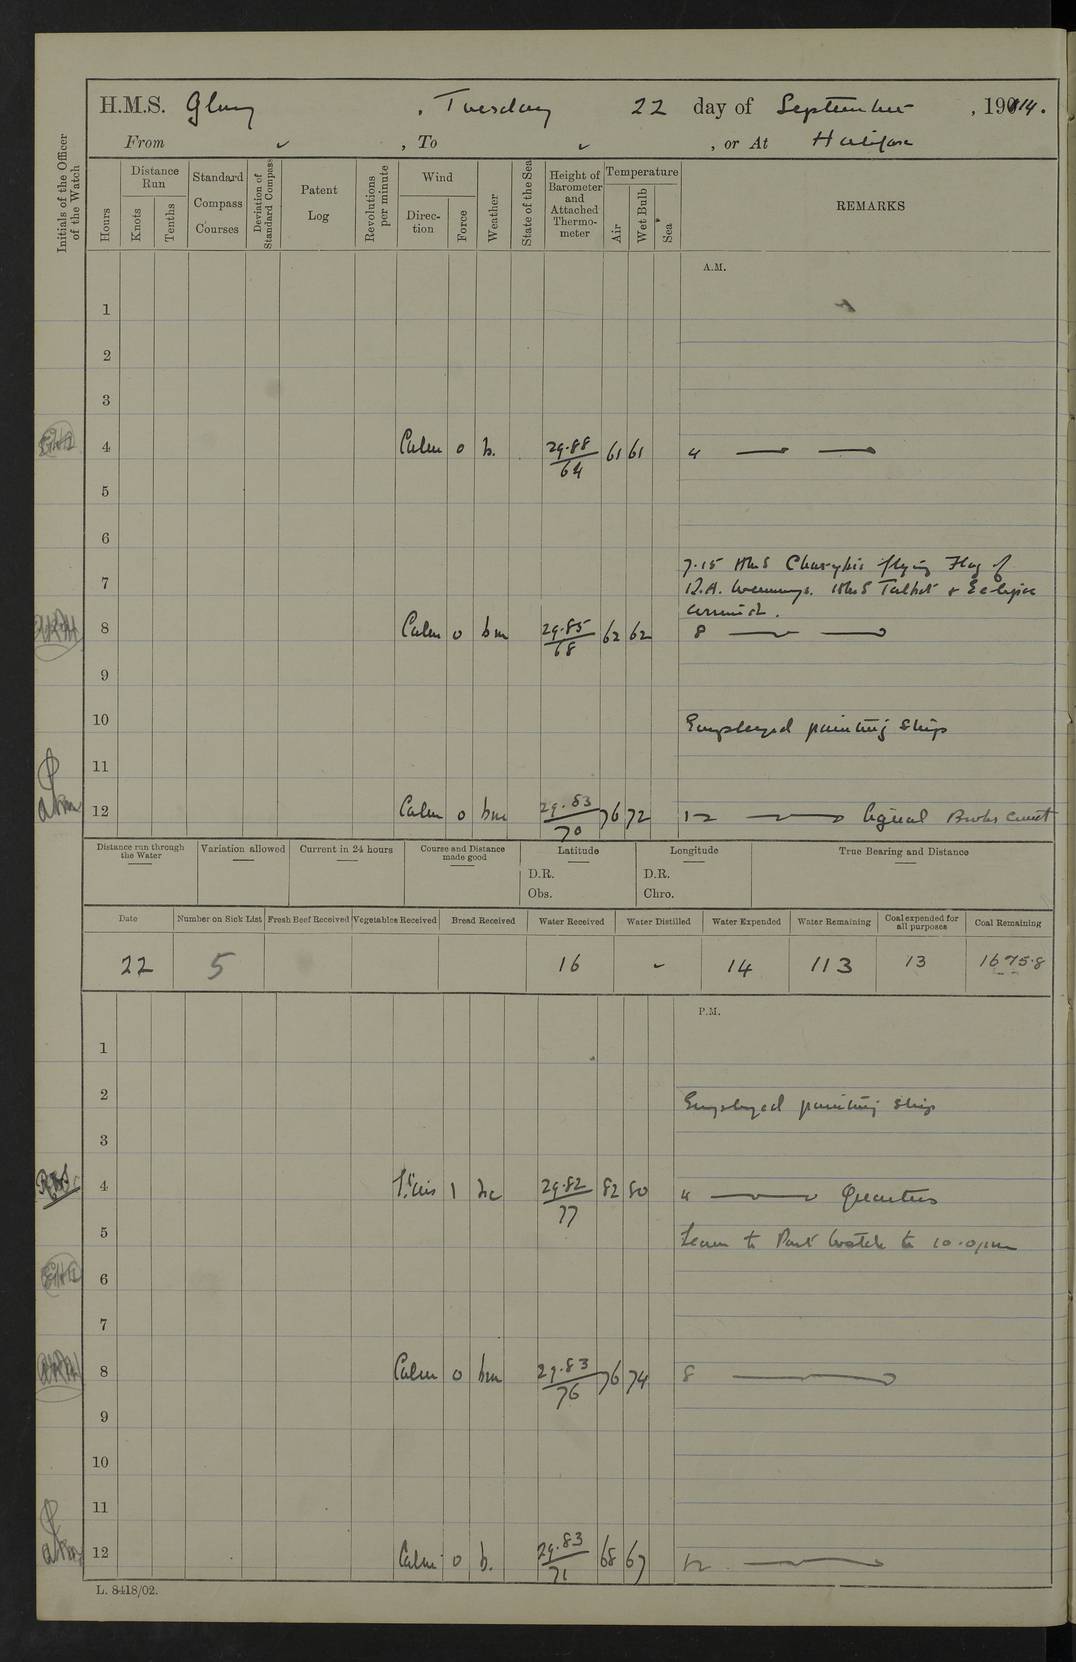 H.M.S. Glory, Tuesday 22 day of September, 1914.
From ✓, To ✓, or At Halifax
Initials of the Officer of the Watch
Hours
Distance Run
Knots
Tenths
Standard Compass Courses
Deviation of Standard Compass
Patent Log
Revolutions per minute
Wind
Direction
Force
Weather
State of the Sea
Height of Barometer and Attached Thermometer
Temperature
Air
Wet Bulb
Sea
REMARKS
A.M.
1
2
3
4 Calm 0 b. 29.88/64 61 61 4
5
6
7.15 HMS Charybdis flying Flag of
7 R.A. Wemyss. HMS Talbot & Eclipse
arrived.
8 Calm 0 bm 29.85/68 62 62 8
9
10 Employed painting ship
11
12 Calm 0 bm 29.83/70 76 72 12 Signal Books correct
Distance run through the Water
Variation allowed
Current in 24 hours
Course and Distance made good
Latitude
D.R.
Obs.
Longitude
D.R.
Chro.
True Bearing and Distance
Date Number on Sick List Fresh Beef Received Vegetables Received Bread Received Water Received Water Distilled Water Expended Water Remaining Coal expended for all purposes Coal Remaining
22 5 16 - 14 113 13 1675.8
P.M.
1
2 Employed painting ship
3
4 1 bc 29.82/77 82 80 4 Quarters
5 Leave to Part Watch to 10.0 pm
6
7
8 Calm 0 bm 29.83/76 76 74 8
9
10
11
12 Calm 0 b. 29.83/71 68 67 12
L. 8418/02.